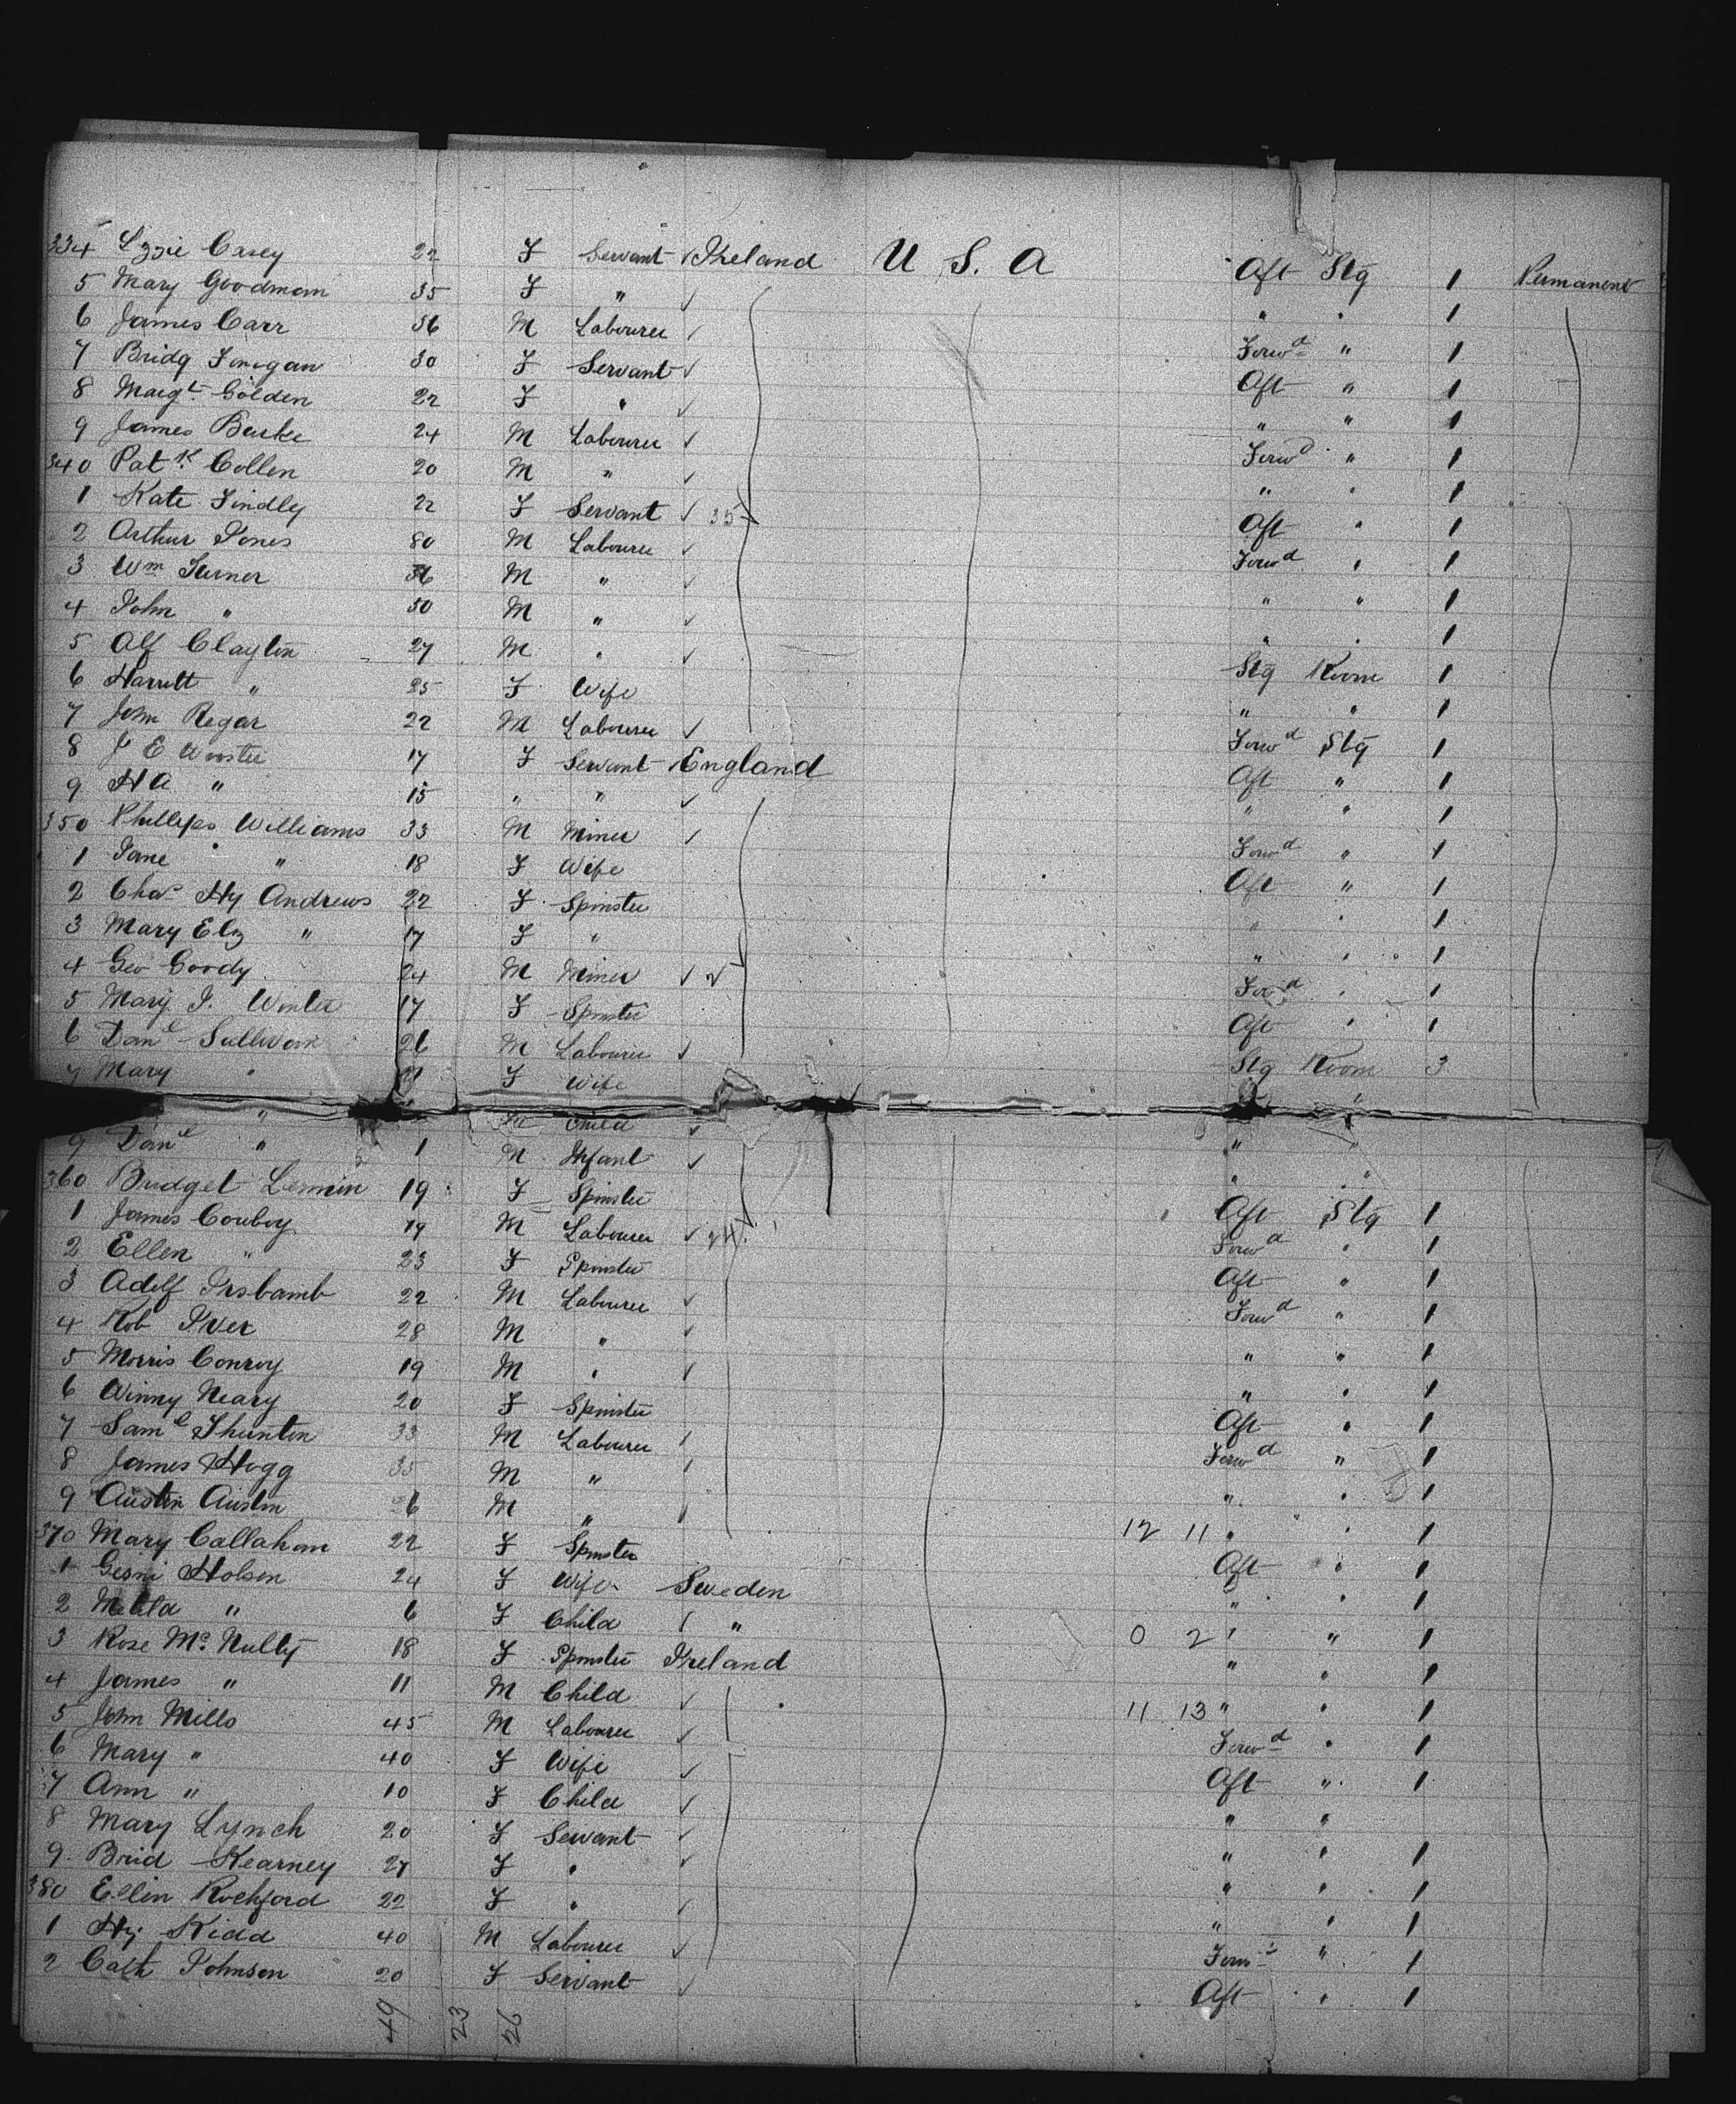 334 Lizzie Casey 22 F Servant ✓ Ireland U S. A Aft Stg 1 Permanent
5 Mary Goodman 35 F " ✓ " " 1
6 James Carr 36 M Labourer ✓ Forwd " 1
7 Bridg Finegan 30 F Servant ✓ Aft " 1
8 Margt Golden 22 F " ✓ " " 1
9 James Burke 24 M Labourer ✓ Forwd " 1
340 Patk Collen 20 M " ✓ " " 1
1 Kate Findley 22 F Servant ✓ 35 Aft " 1
2 Arthur Jones 80 M Labourer ✓ Forwd " 1
3 Wm Turner 36 M " ✓ " " 1
4 John " 50 M " ✓ " " 1
5 Alf Clayton 27 M " ✓ Stg Room 1
6 Harriett " 25 F Wife " " 1
7 John Regar 22 M Labourer ✓ Forwd Stg 1
8 J E Wooster 17 F Servant England Aft " 1
9 H A " 15 " " ✓ " " 1
350 Phillips Williams 33 M Miner ✓ Forwd " 1
1 Jane " 18 F Wife Aft " 1
2 Chas Hy Andrews 22 F Spinster " " 1
3 Mary Elz " 17 F " " " 1
4 Geo Goody 24 M Miner ✓ Forwd " 1
5 Mary J. Winter 17 F Spinster Aft " 1
6 Danl Sullivan 26 M Labourer ✓ Stg Room 3
7 Mary " 21 F Wife "
" Child ✓ " "
9 Danl " 1 M Infant ✓ " "
360 Bridget Lennin 19 F Spinster Aft Stg 1
1 James Conboy 19 M Labourer ✓ 24 Forwd " 1
2 Ellen " 23 F Spinster Aft " 1
3 Adolf 22 M Labourer ✓ Forwd " 1
4 Rob Iver 28 M " ✓ " " 1
5 Morris Conroy 19 M " ✓ " " 1
6 Winny Neary 20 F Spinster Aft " 1
7 Saml Thunton 33 M Labourer ✓ Forwd " 1
8 James Hogg 35 M " ✓ " " 1
9 Austin Austin 26 M " ✓ 12 11 " " 1
370 Mary Callahan 22 F Spinster Aft " 1
1 Gesni Holsen 24 F Wife Sweden " " 1
2 " 6 F Child ✓ " 0 2 " " 1
3 Rose Mc Nulty 18 F Spinster Ireland " " 1
4 James " 11 M Child ✓ 11 13 " " 1
5 John Mills 45 M Labourer ✓ Forwd " 1
6 Mary " 40 F Wife ✓ Aft " 1
7 Ann " 10 F Child ✓ " "
8 Mary Lynch 20 F Servant ✓ " " 1
9 Brid Kearney 27 F " ✓ " " 1
380 Ellin Rochford 22 F " ✓ " " 1
1 Hy Kidd 40 M Labourer ✓ Forwd " 1
2 Cath Johnson 20 F Servant ✓ Aft " 1
49 23 26